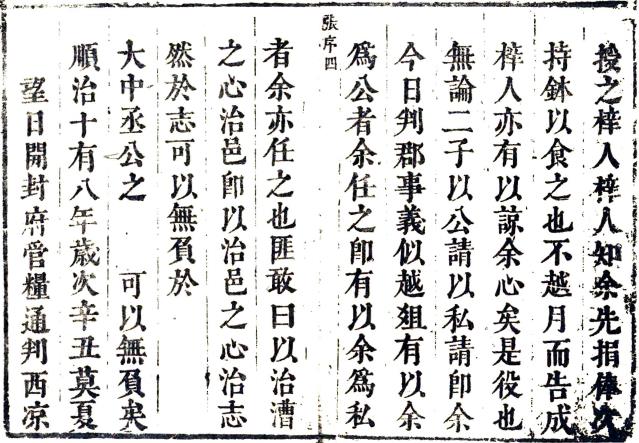 授之梓人梓人知余先捐俸次
持鉢以食之也不越月而告成
梓人亦有以諒余心矣是役也
無論二子以公請以私請卽余
今日判郡事義似越爼有以余
爲公者余任之卽有以余爲私
張序四
者余亦任之也匪敢曰以治漕
之心治邑卽以治邑之心治志
然於志可以無負於
大中丞公之　可以無負矣
順治十有八年歲次辛丑莫夏
望日開封府管糧通判西凉